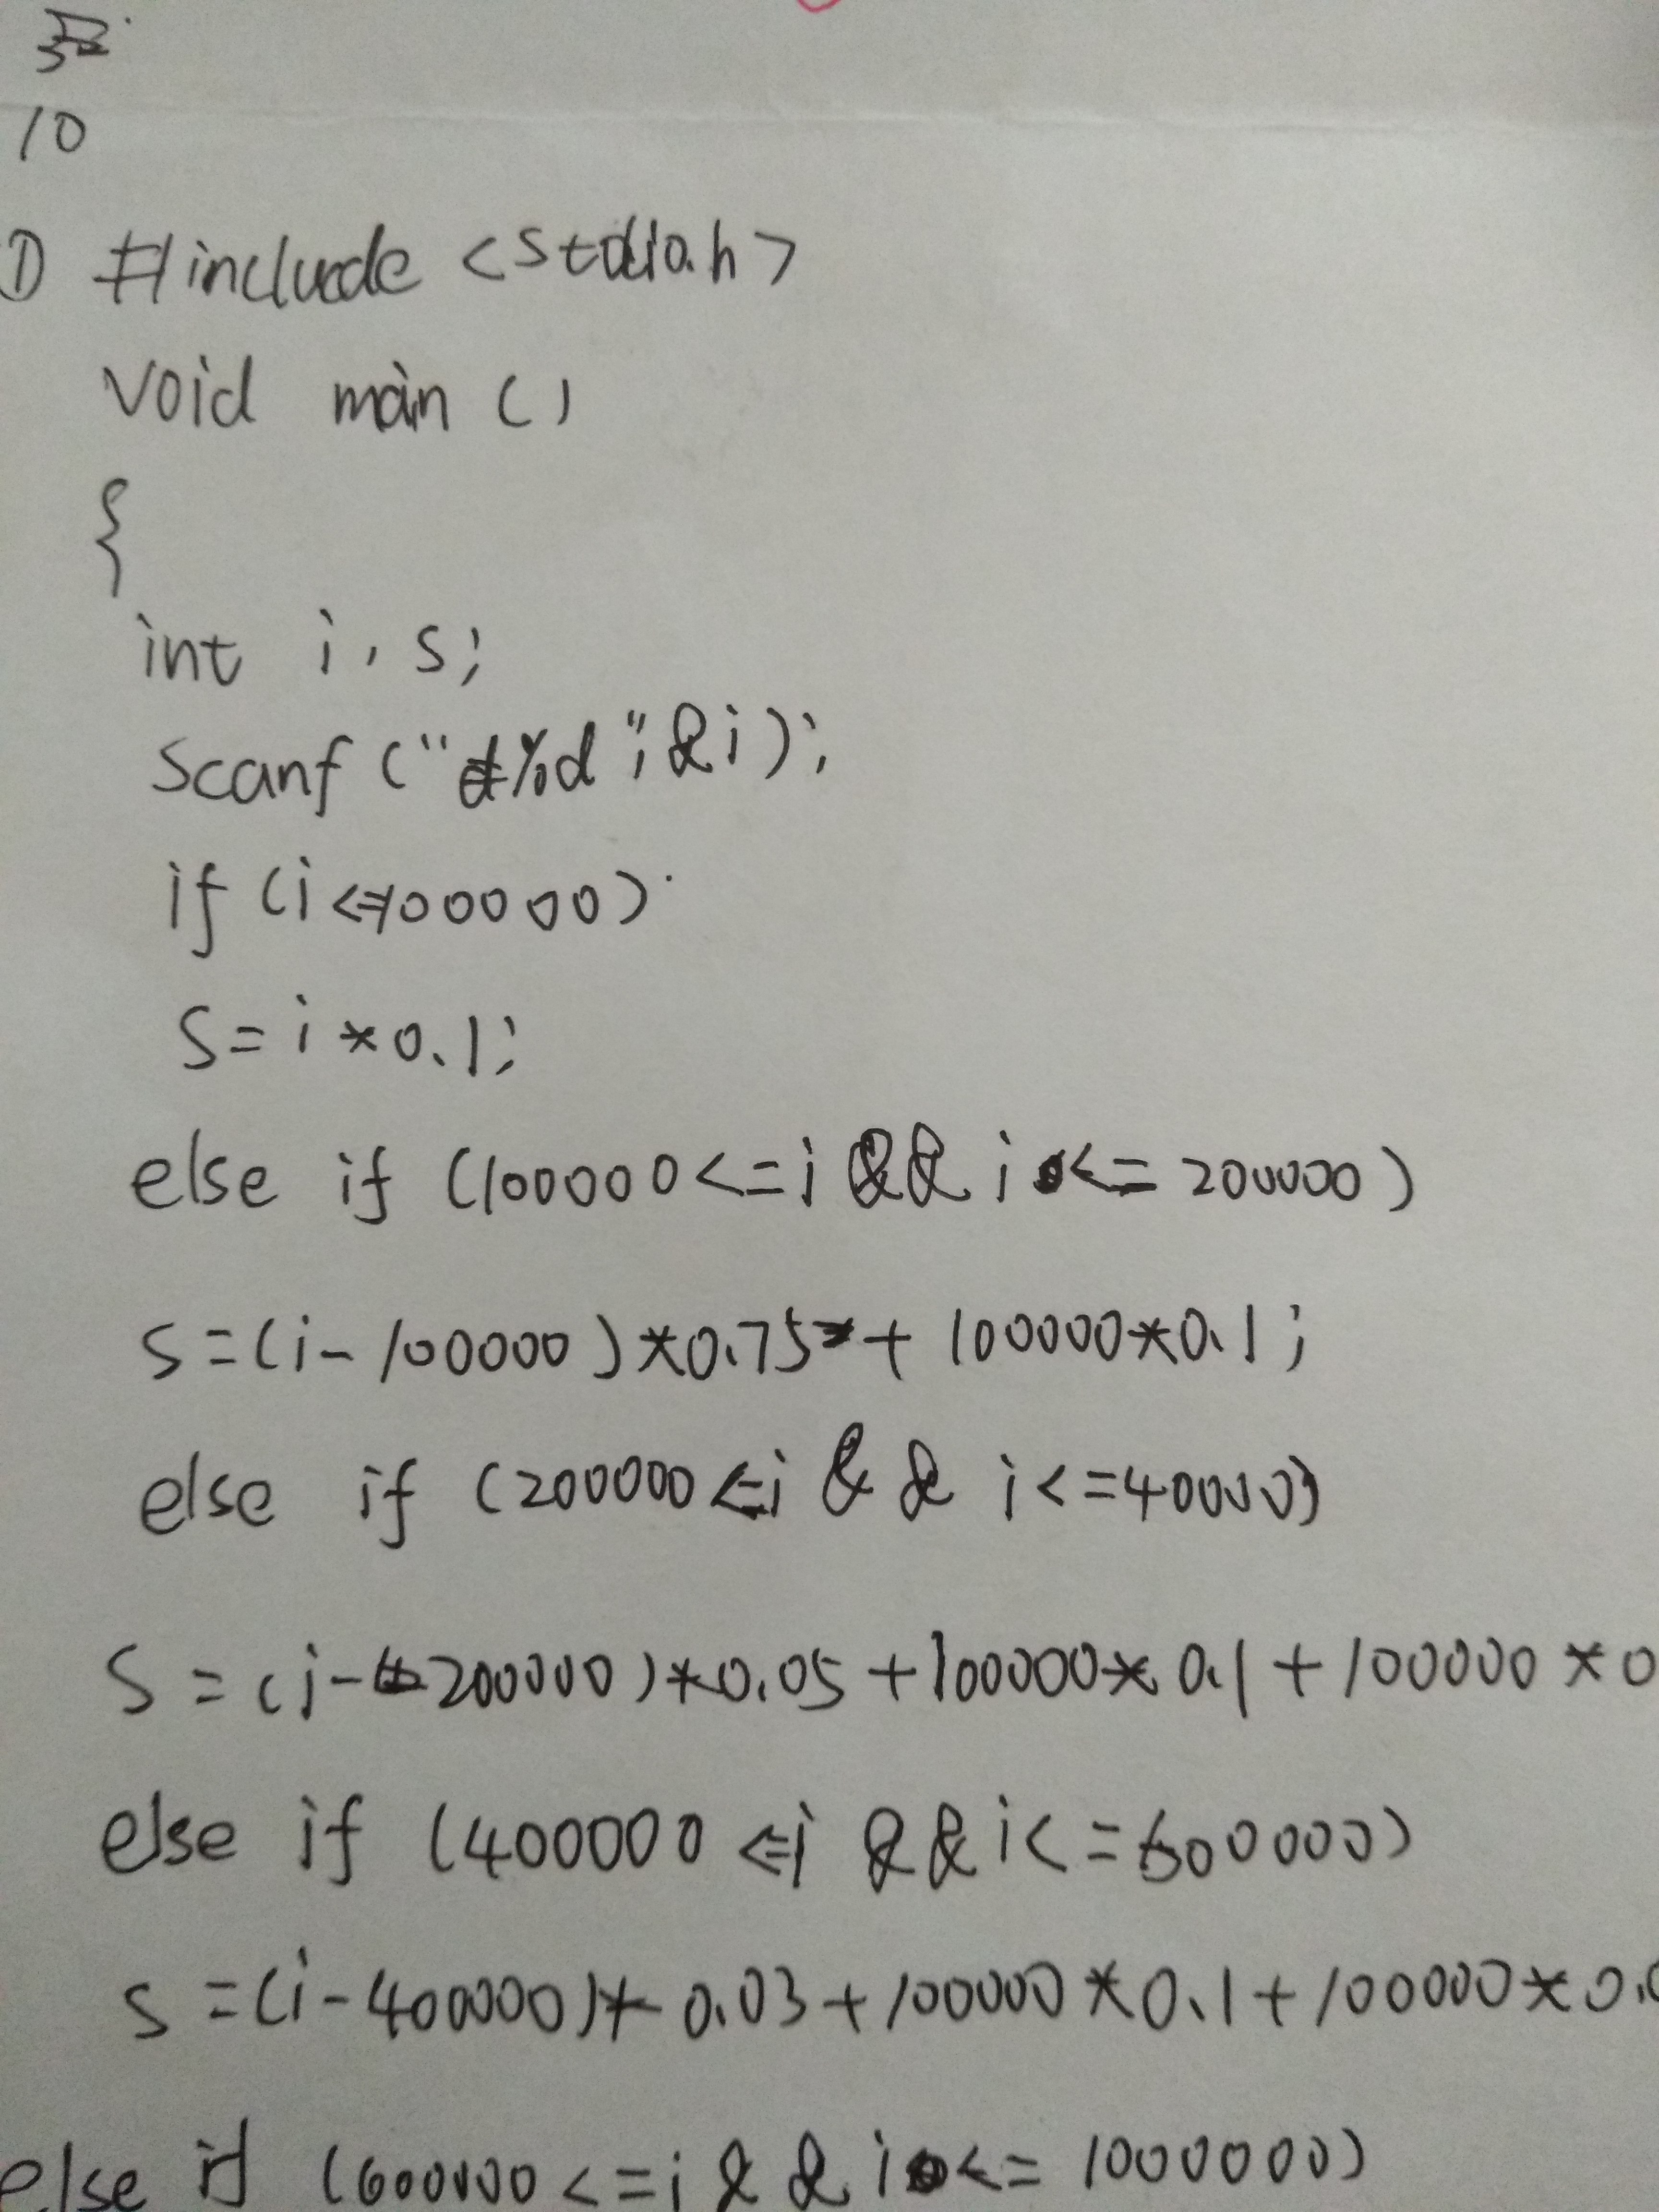 10
① #include <stdio.h>
void main ()
{
int i, s;
scanf ("%d", &i);
if (i<=100000)
s=i*0.1;
else if (100000<=i && i<=200000)
s=(i-100000)*0.75+100000*0.1;
else if (200000<=i && i<=400000)
s=(i-200000)*0.05+100000*0.1+100000*0
else if (400000<=i && i<=600000)
s=(i-400000)*0.03+100000*0.1+100000*0.0
else if (600000<=i && i<=1000000)